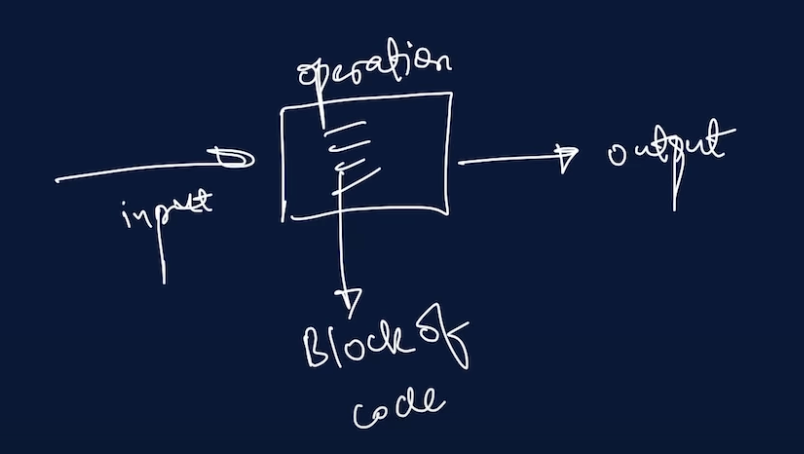 operation
input
output
Block of
code